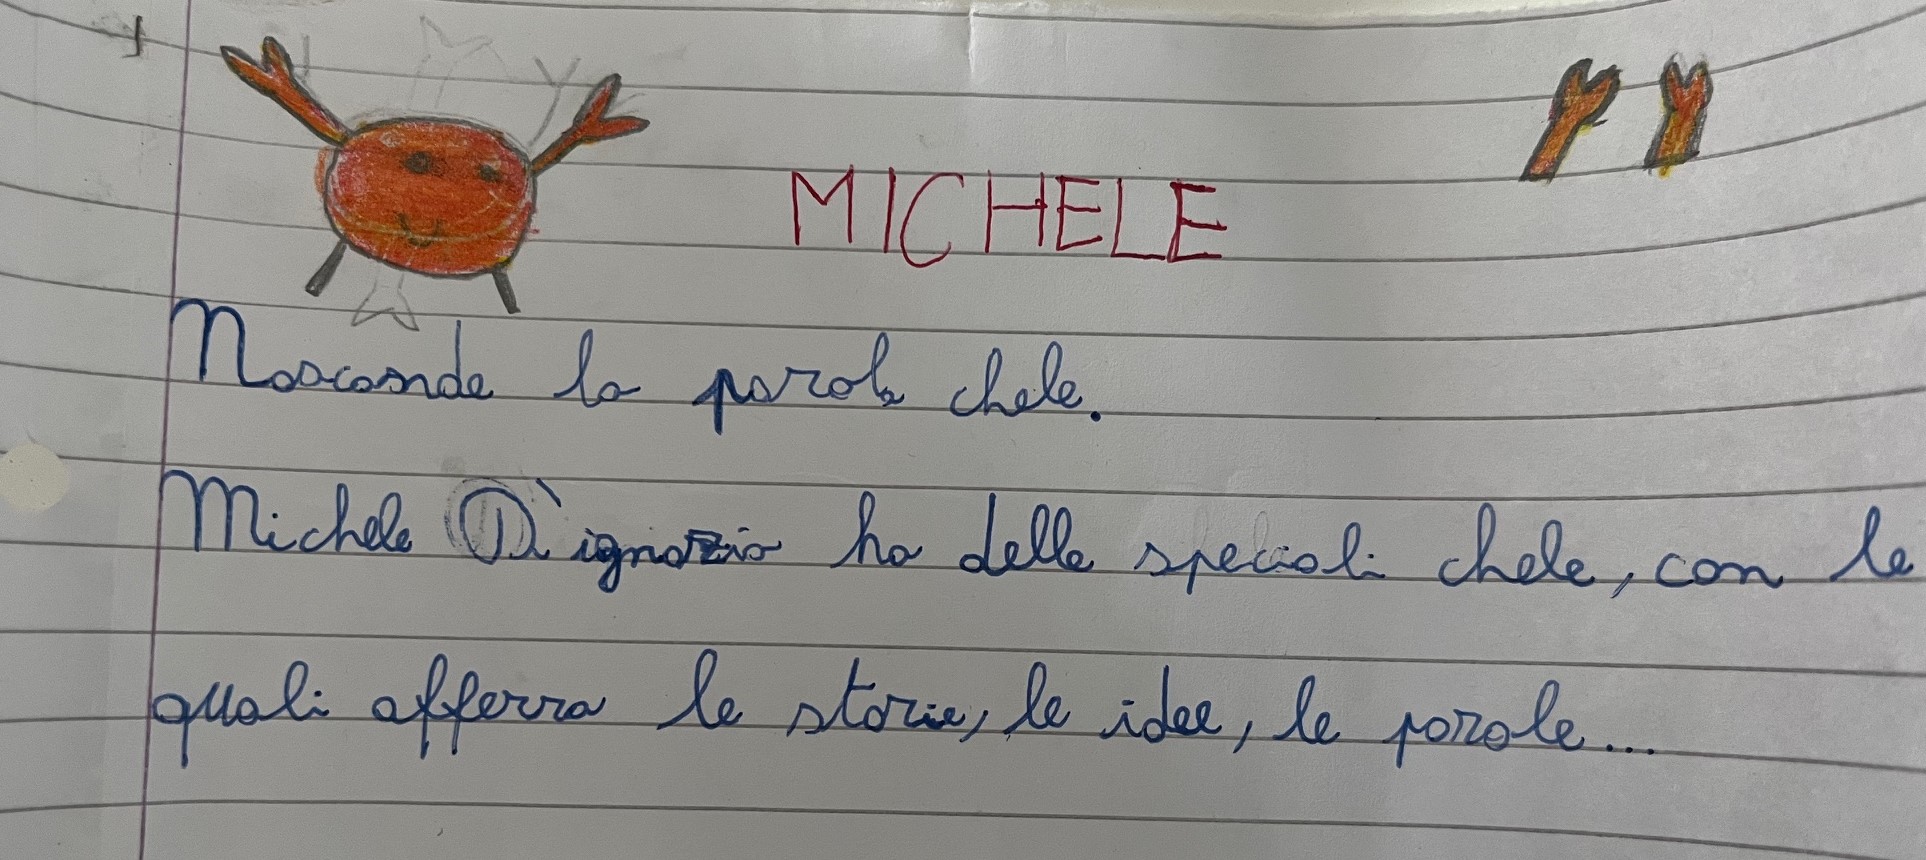 MICHELE
Nasconde la parola chele.
Michele Dì ignazio ha delle speciali chele, con le
quali afferra le storie, le idee, le parole...